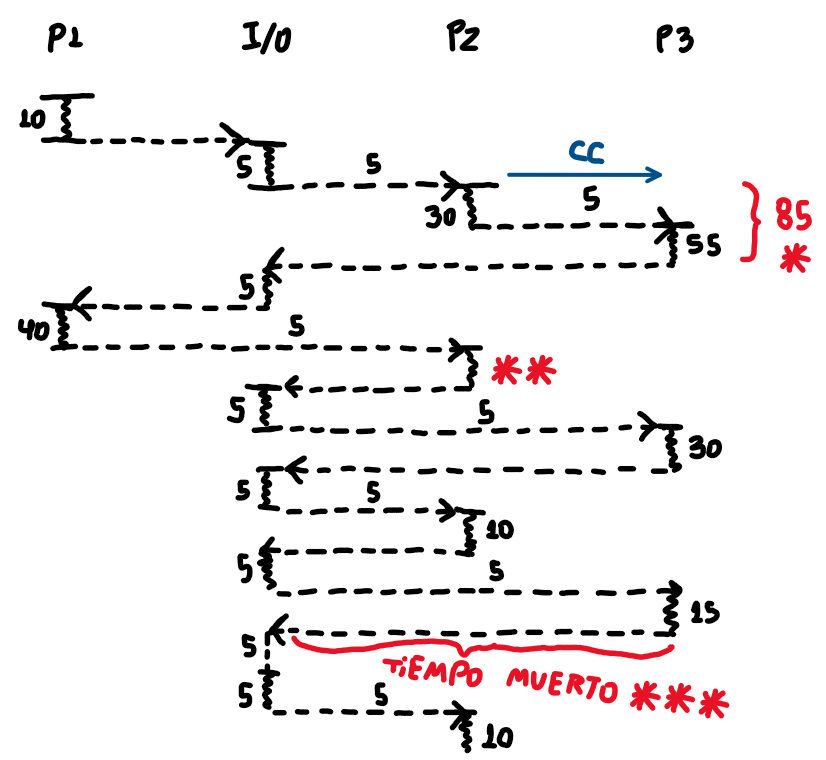 P1 I/O P2 P3
10
5 5 CC
30 5 85
55 *
5
40 5
**
5 5
30
5 5
10
5 5
15
5
TiEMPO MUERTO ***
5 5
10